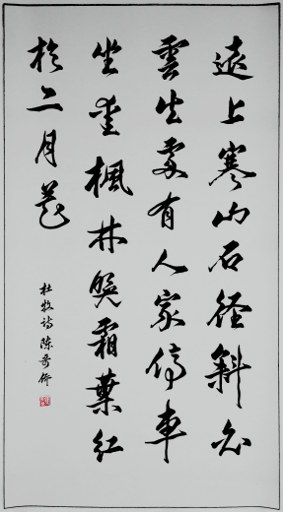 遠上寒山石径斜白
雲生處有人家停車
坐愛楓林晚霜葉红
於二月花
杜牧诗陈